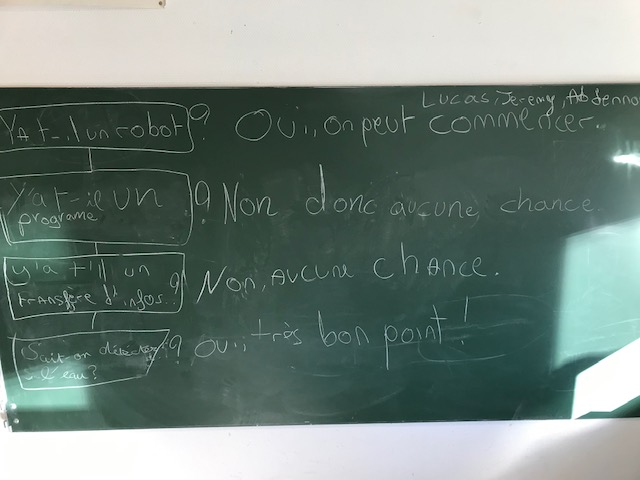 Lucas, Jeremy, Abdenno
Y A t-il un robot ? Oui, on peut commencer.
Y'at-il un
programe ? Non donc aucune chance.
y'a t'il un
transfère d'infos.. ? Non, aucune chance.
Sait on détecter
de l'eau? ? oui, très bon point!